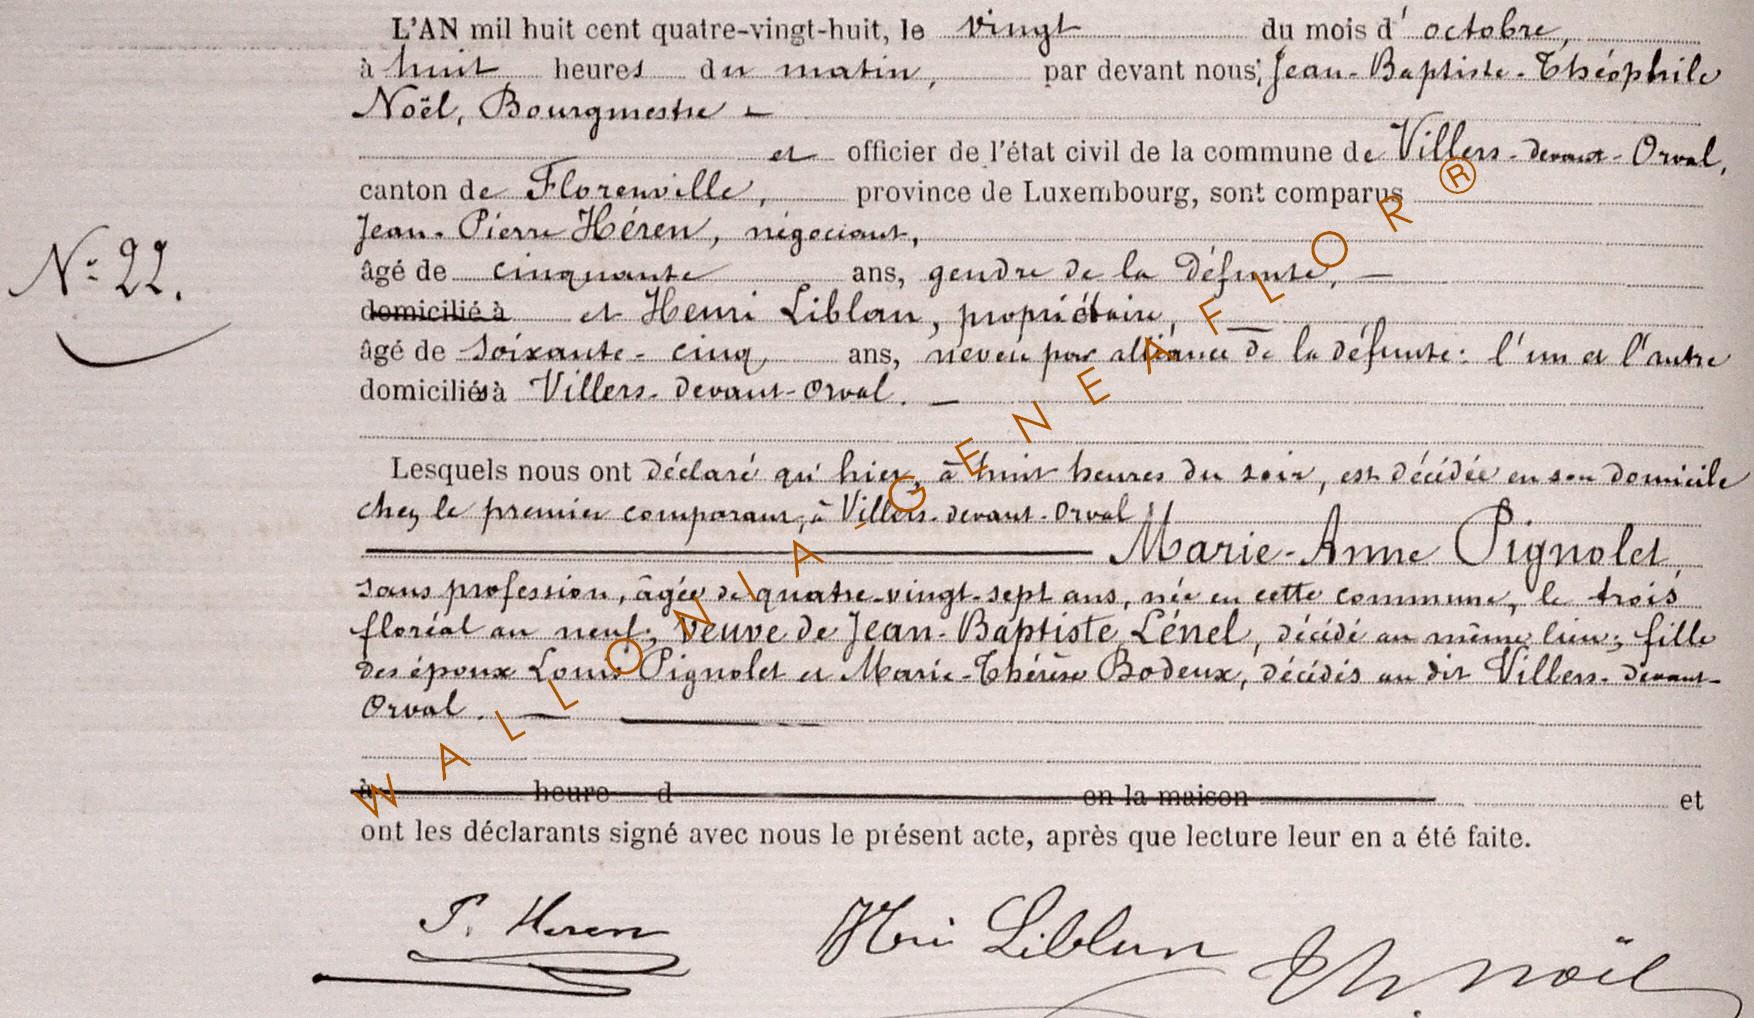 L'AN mil huit cent quatre-vingt-huit, le vingt du mois d'octobre,
à huit heures du matin, par devant nous, Jean-Baptiste-Théophile
Noël, Bourgmestre
et officier de l'état civil de la commune de Villers-devant-Orval,
canton de Florenville, province de Luxembourg, sont comparus
Jean-Pierre Héren, négociant,
N° 22.
âgé de cinquante ans, gendre de la défunte,
domicilié à et Henri Liblan, propriétaire,
âgé de soixante-cinq ans, neveu par alliance de la défunte: l'un et l'autre
domiciliés à Villers-devant-Orval.
Lesquels nous ont déclaré qu'hier, à huit heures du soir, est décédée en son domicile
chez le premier comparant, à Villers-devant-Orval
Marie-Anne Pignolet,
sans profession, âgée de quatre-vingt-sept ans, née en cette commune, le trois
floréal an neuf, Veuve de Jean-Baptiste Lénel, décédé au même lieu; fille
des époux Louis Pignolet et Marie-Thérèse Bodeux, décédés au dit Villers-devant-
Orval.
à heure d en la maison et
ont les déclarants signé avec nous le présent acte, après que lecture leur en a été faite.
P. Heren Hri Liblan Th. Noël
WALLONIA-GENEAFLOR®